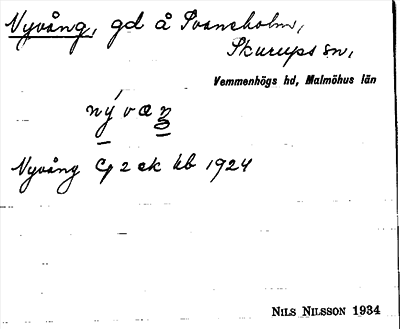 Nyvång, gd å Svaneholm,
Skurups sn,
Vemmenhögs hd, Malmöhus län
Nyvång Cg 2 ek kb 1924
NILS NILSSON 1934